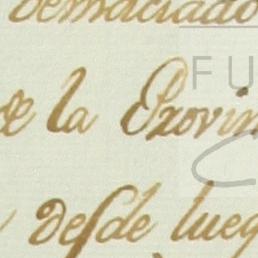 demaciado
de la Provin
desde lueg
FU